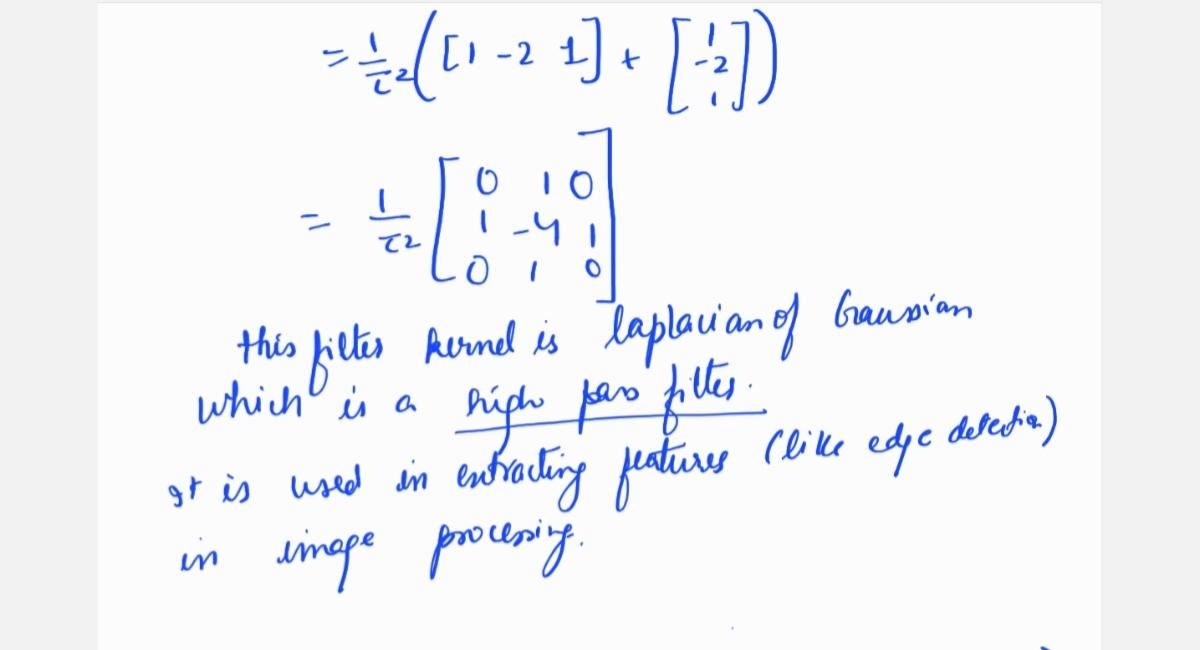 = 1/τ2 ([1 -2 1] + [1 -2 1])
= 1/τ2 [0 1 0
1 -4 1
0 1 0]
this filter kernel is laplacian of Gaussian
which is a high pass filter.
It is used in extracting features (like edge detection)
in image processing.